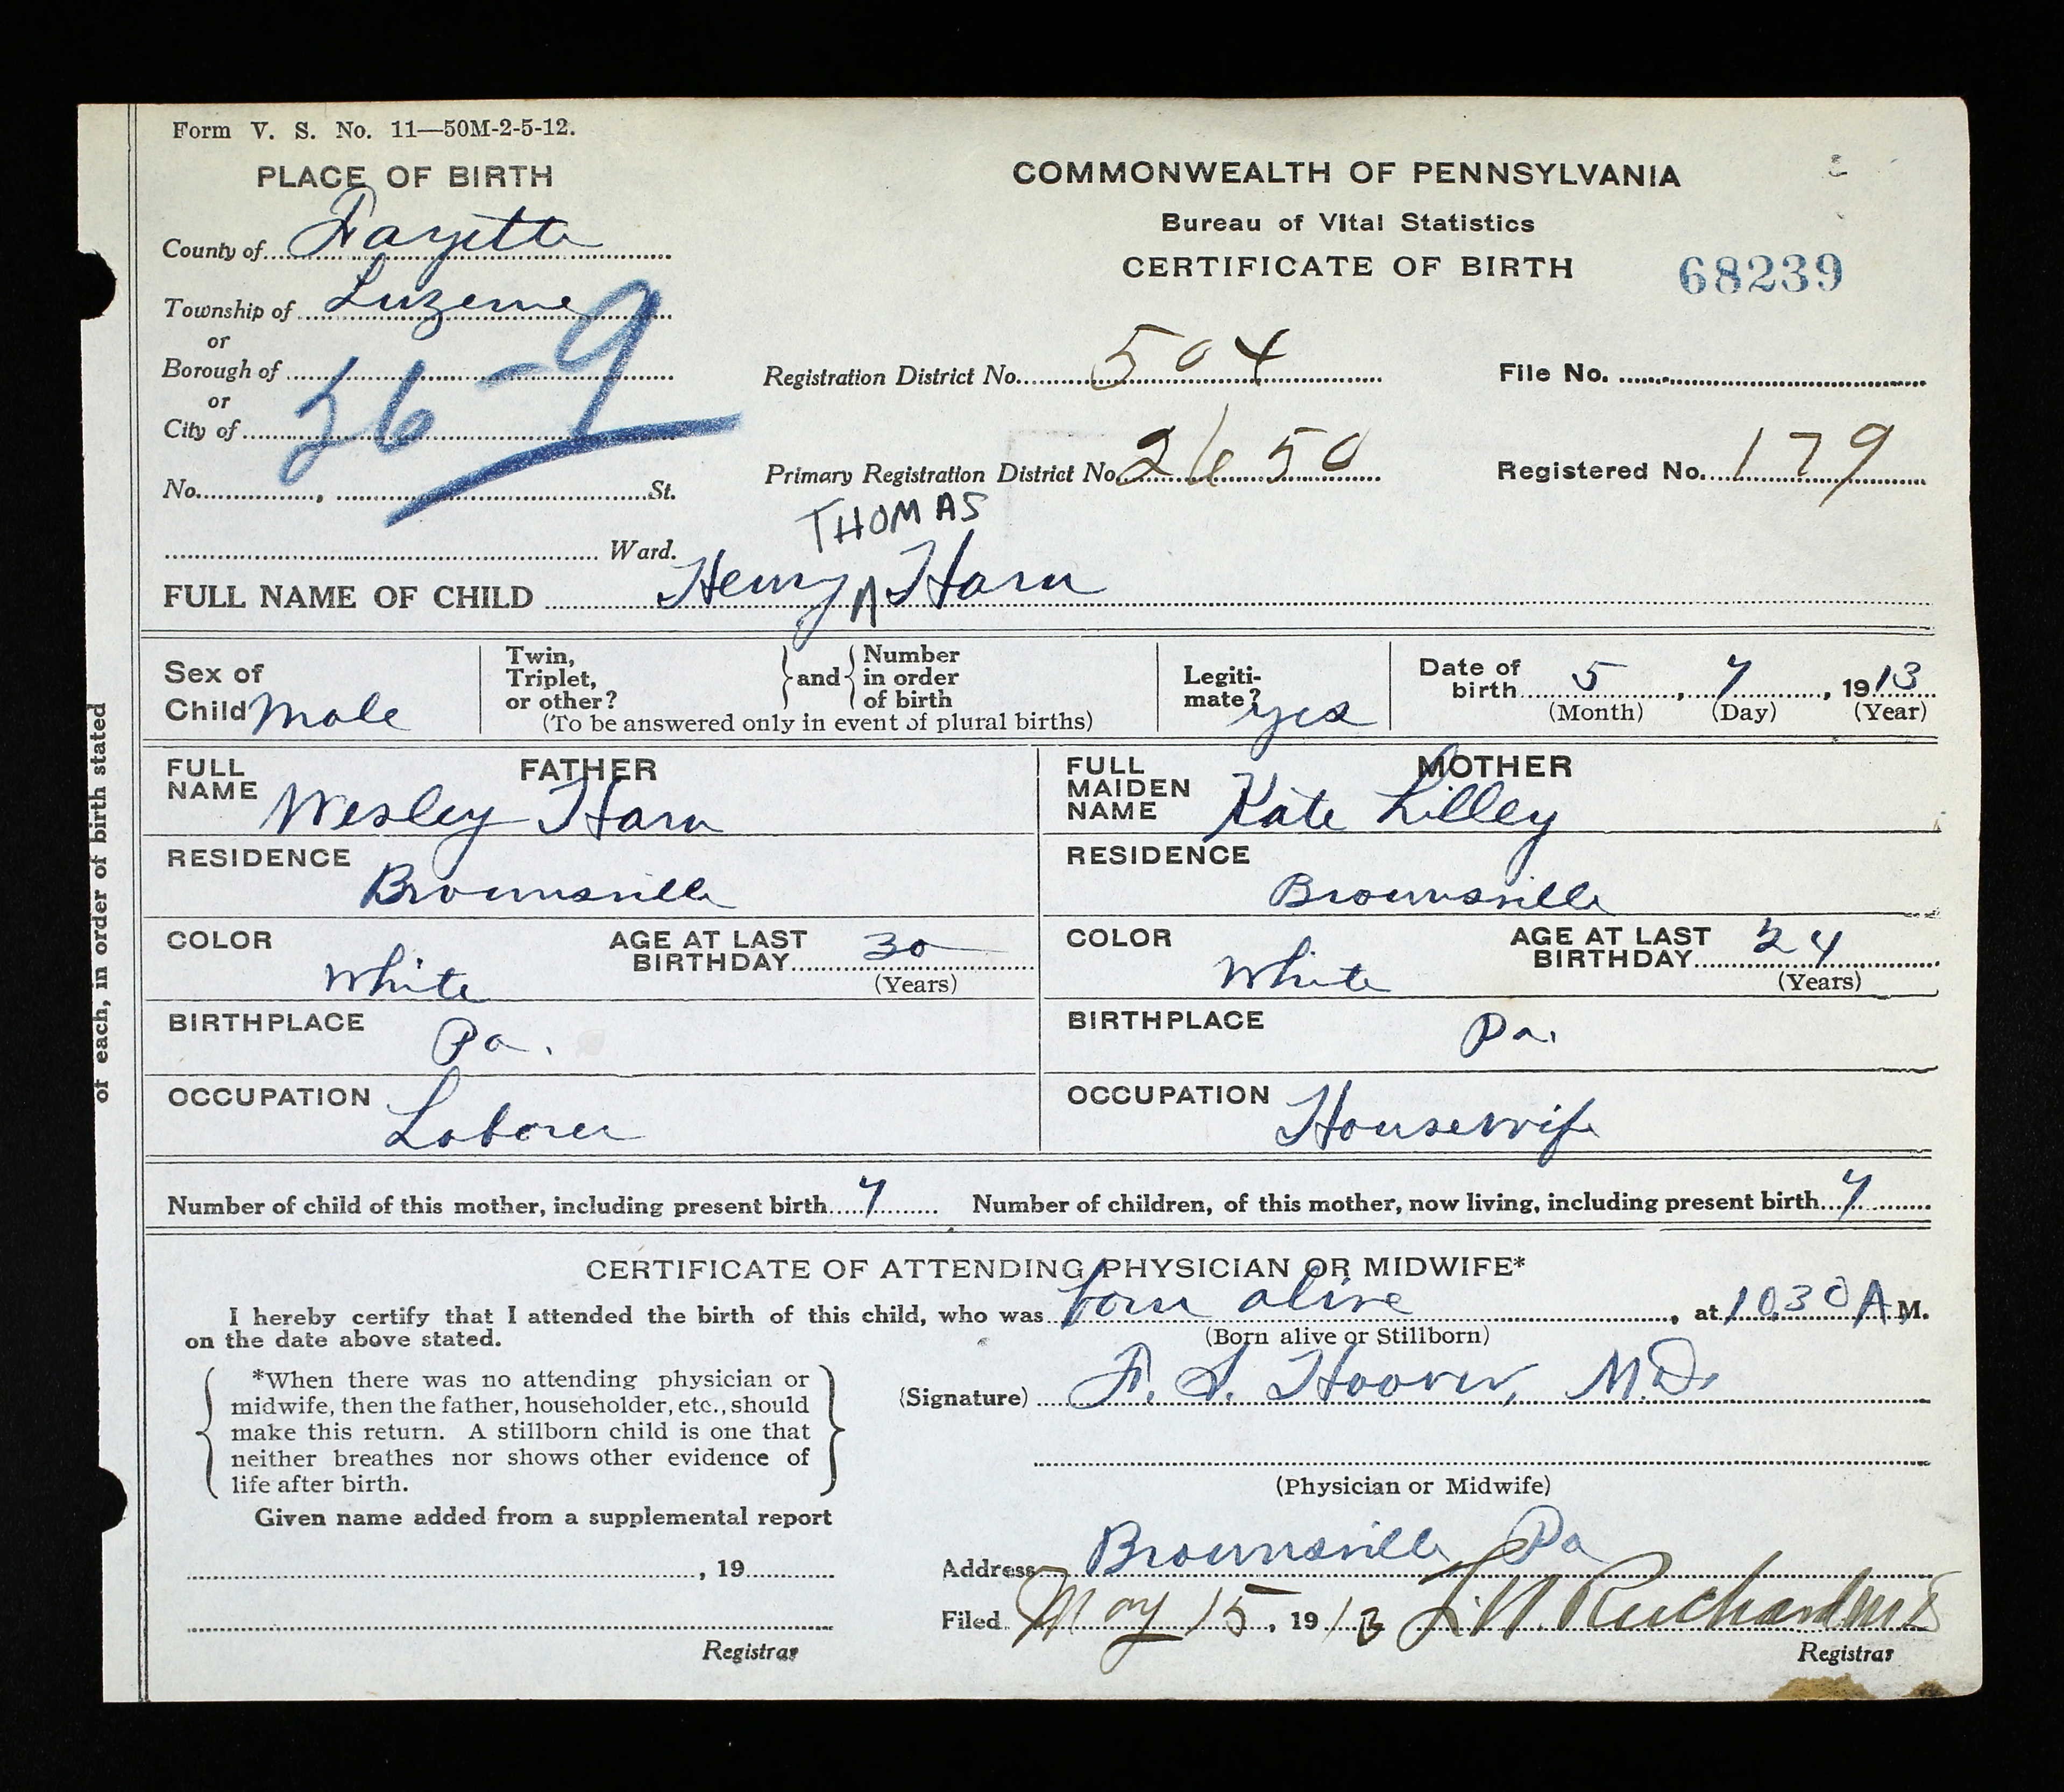 Form V. S. No. 11—50M-2-5-12.
PLACE OF BIRTH
County of Fayette
Township of Luzerne
or
Borough of
or
City of
26-9
No. , St.
Ward.
COMMONWEALTH OF PENNSYLVANIA
Bureau of Vital Statistics
CERTIFICATE OF BIRTH
68239
Registration District No. 504
File No.
Primary Registration District No. 2650
Registered No. 179
THOMAS
FULL NAME OF CHILD Henry ^ Harn
Sex of Child Male
Twin, Triplet, or other?
and
Number in order of birth
(To be answered only in event of plural births)
Legiti-mate? yes
Date of birth 5, 7, 1913
(Month) (Day) (Year)
FATHER
FULL NAME Wesley Harn
RESIDENCE Brownsville
COLOR White
AGE AT LAST BIRTHDAY 30
(Years)
BIRTHPLACE Pa.
OCCUPATION Laborer
MOTHER
FULL MAIDEN NAME Kate Lilley
RESIDENCE Brownsville
COLOR White
AGE AT LAST BIRTHDAY 24
(Years)
BIRTHPLACE Pa.
OCCUPATION Housewife
Number of child of this mother, including present birth 7 Number of children, of this mother, now living, including present birth 7
CERTIFICATE OF ATTENDING PHYSICIAN OR MIDWIFE*
I hereby certify that I attended the birth of this child, who was born alive, at 10.30 A M.
on the date above stated. (Born alive or Stillborn)
*When there was no attending physician or
midwife, then the father, householder, etc., should
make this return. A stillborn child is one that
neither breathes nor shows other evidence of
life after birth.
Given name added from a supplemental report
, 19
Registrar
(Signature) Hoover, M.D.
(Physician or Midwife)
Address Brownsville Pa
Filed May 15, 1913
Registrar
of each, in order of birth stated